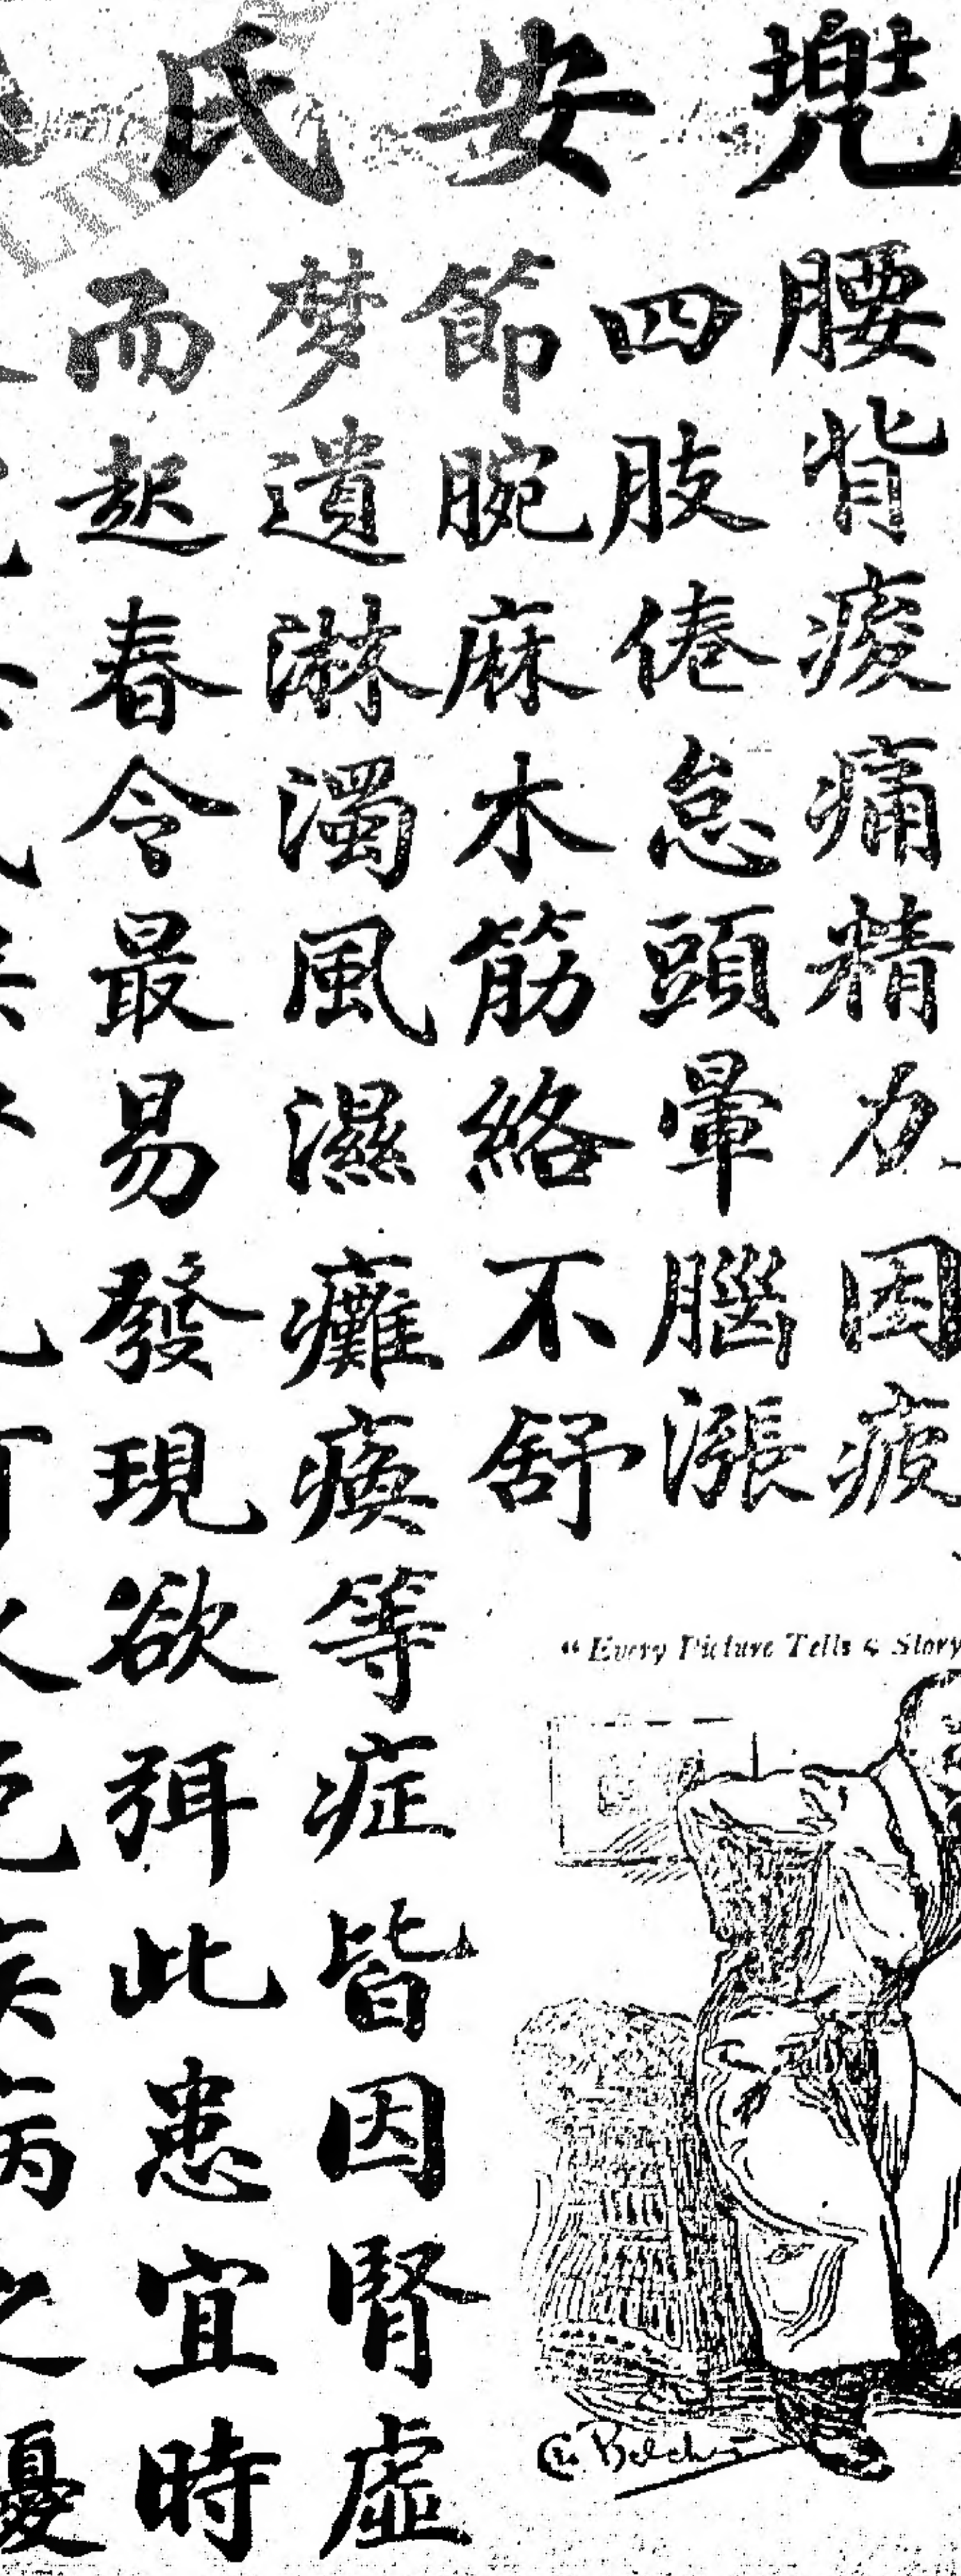 兜安氏
腰背痠痛精力困疲
四肢倦怠頭暈腦漲
節腕麻木筋絡不舒
梦遺淋濁風濕癱瘓等症皆因腎虛
而起春令最易發現欲弭此患宜時
病之憂
"Every Picture Tells a Story